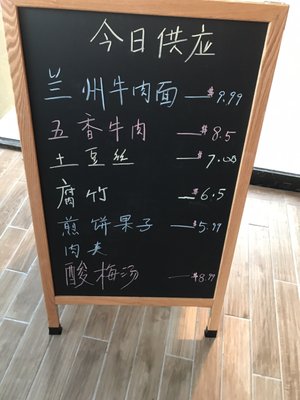 今日供应
兰州牛肉面 —$9.99
五香牛肉 —$8.5
土豆丝 —$7.00
腐竹 —$6.5
煎饼果子 —$5.99
肉夹
酸梅汤 —$8.99